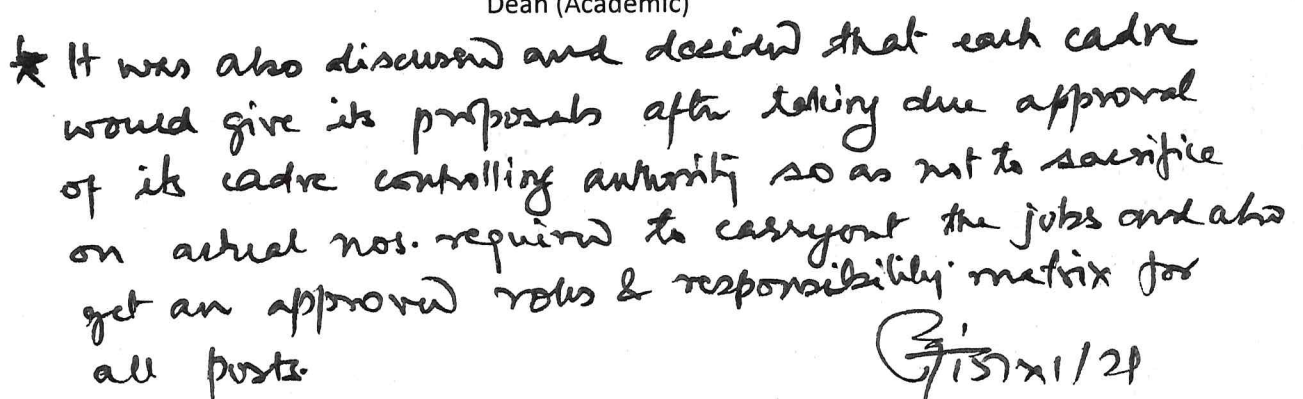 Dean (Academic)
* It was also discussed and decided that each cadre
would give its proposals after taking due approval
of its cadre controlling authority so as not to sacrifice
on actual nos. required to carryout the jobs and also
get an approved roles & responsibility matrix for
all posts.